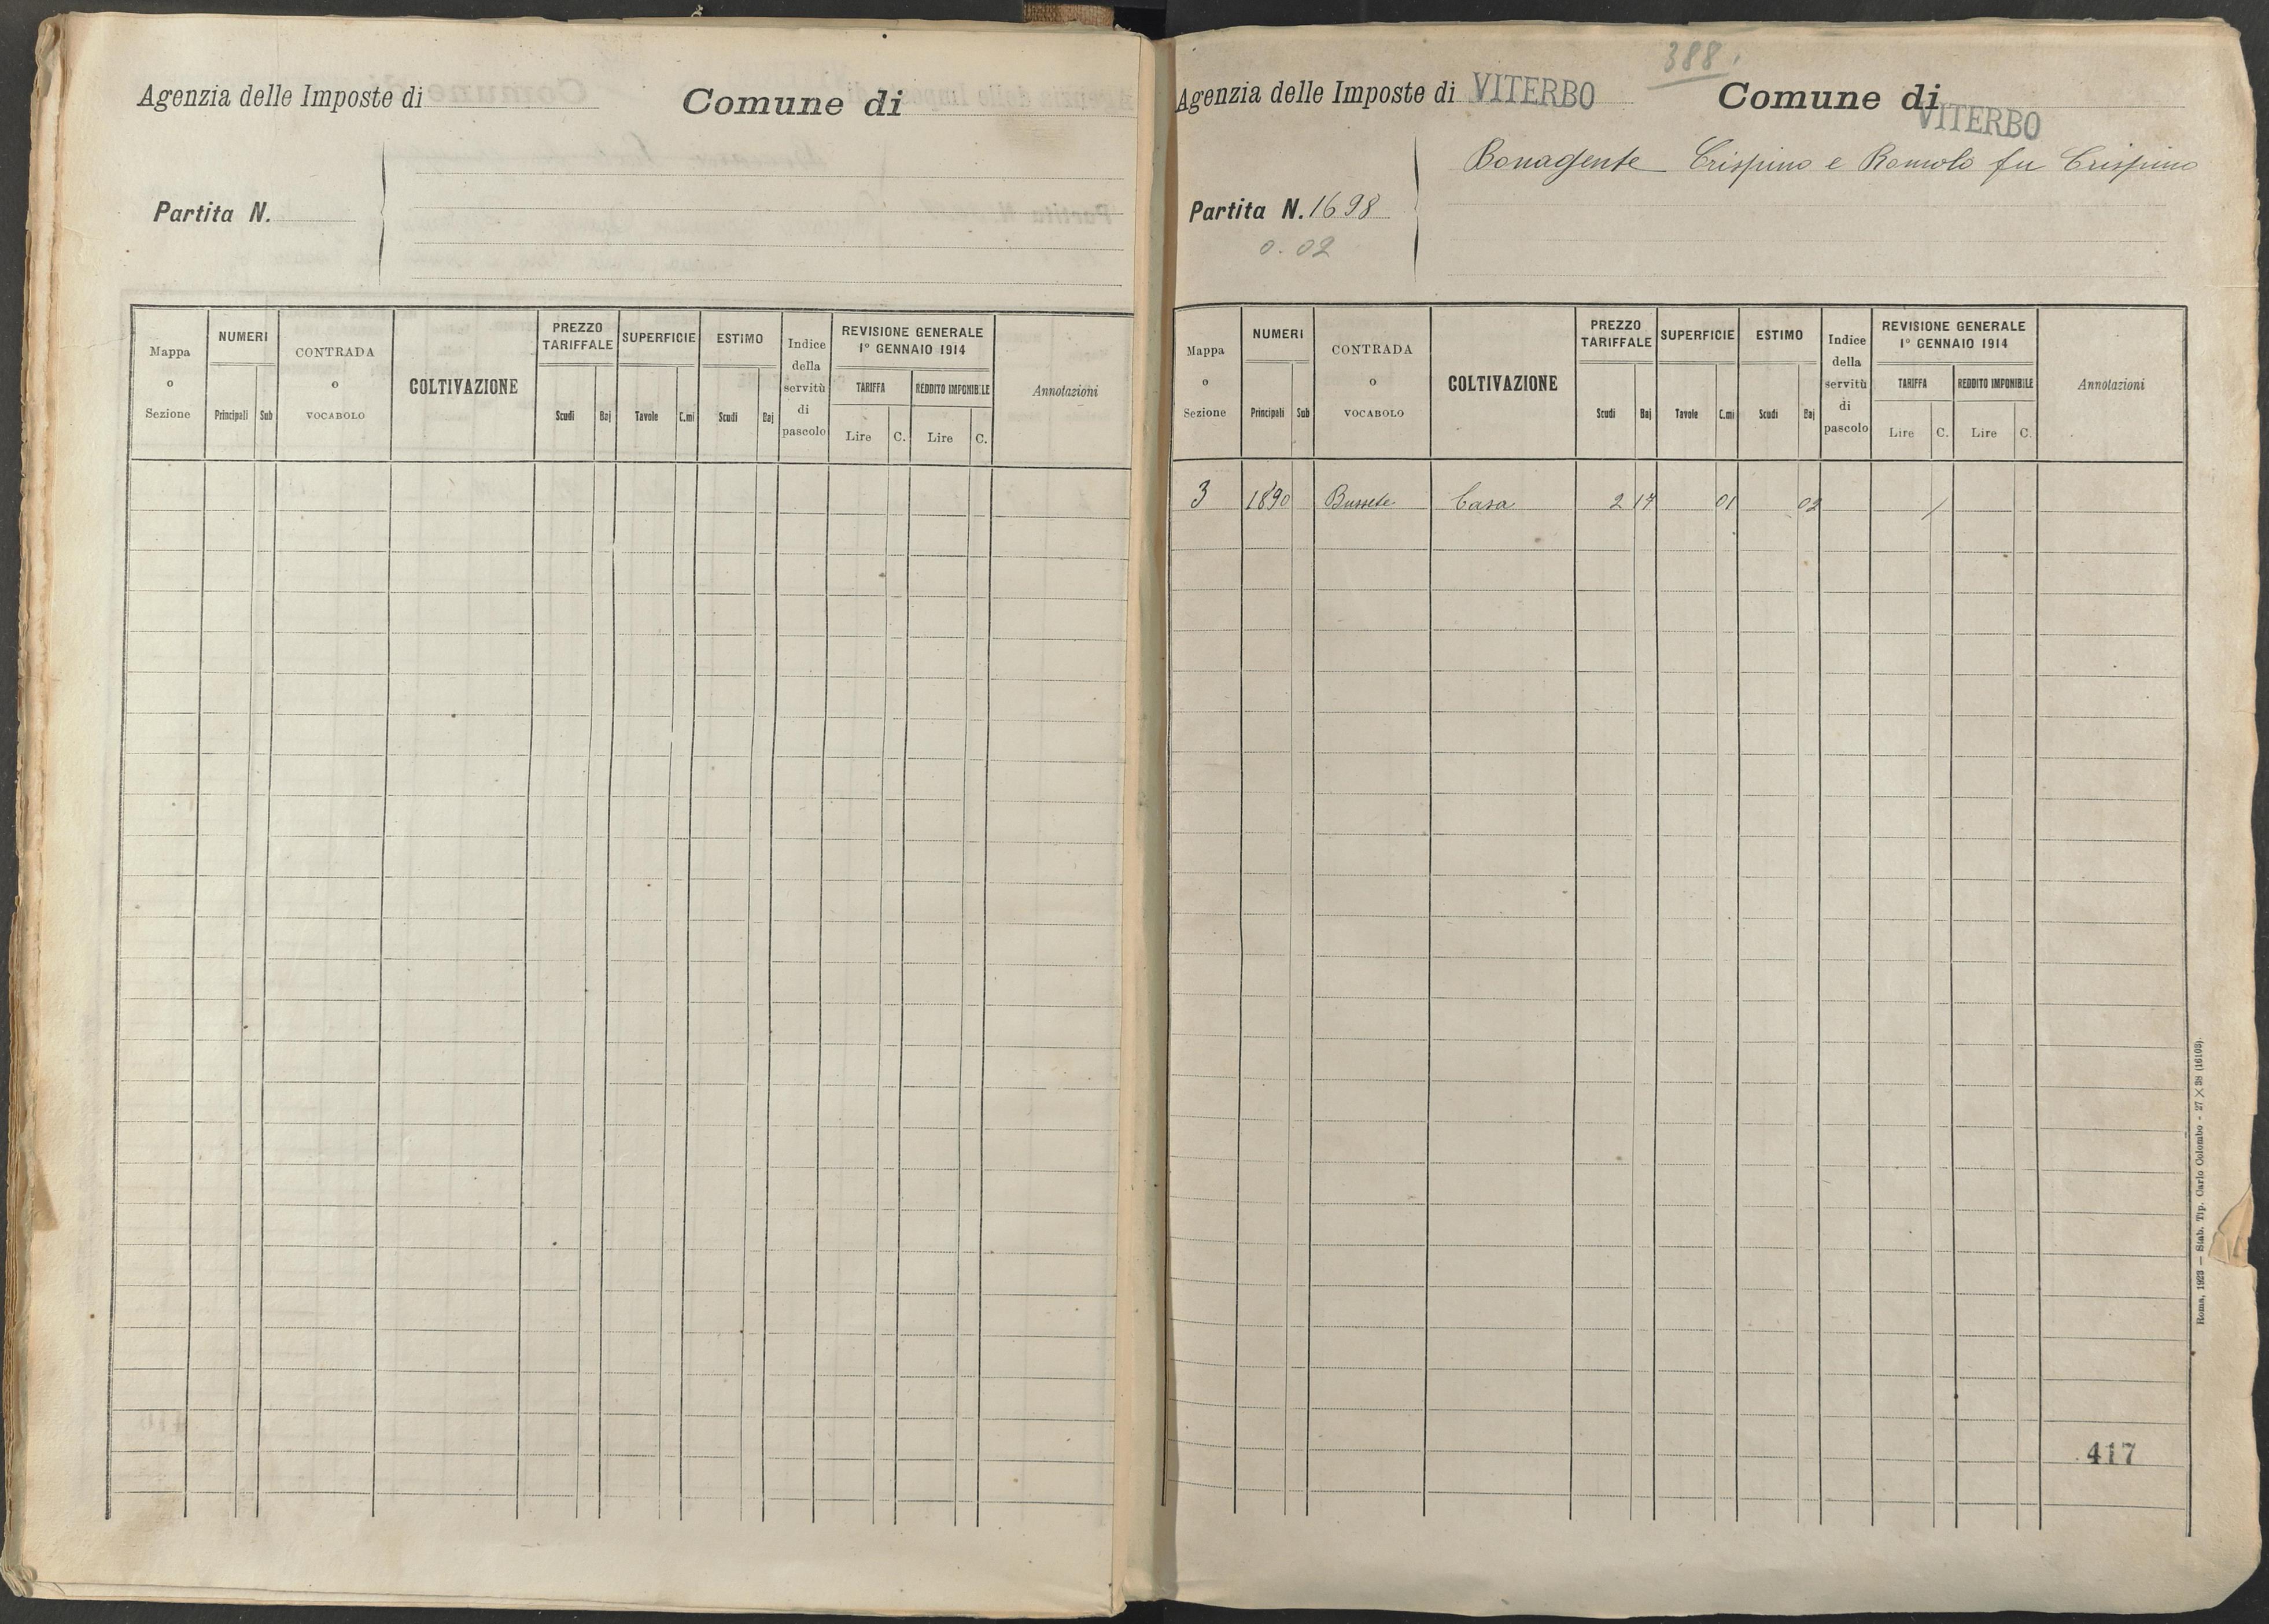 Agenzia delle Imposte di
Comune di
Partita N.
Mappa o Sezione
NUMERI
Principali Sub
CONTRADA o VOCABOLO
COLTIVAZIONE
PREZZO TARIFFALE
Scudi Baj
SUPERFICIE
Tavole C.mi
ESTIMO
Scudi Baj
Indice della servitù di pascolo
REVISIONE GENERALE
1° GENNAIO 1914
TARIFFA
Lire C.
REDDITO IMPONIBILE
Lire C.
Annotazioni
388
Agenzia delle Imposte di VITERBO
Comune di VITERBO
Bonagente Crispino e Romolo fu Crispino
Partita N. 1698
0.02
Mappa o Sezione
NUMERI
Principali Sub
CONTRADA o VOCABOLO
COLTIVAZIONE
PREZZO TARIFFALE
Scudi Baj
SUPERFICIE
Tavole C.mi
ESTIMO
Scudi Baj
Indice della servitù di pascolo
REVISIONE GENERALE
1° GENNAIO 1914
TARIFFA
Lire C.
REDDITO IMPONIBILE
Lire C.
Annotazioni
3 1890 Bussete Casa 2 17 01 02 /
417
Roma, 1923 — Stab. Tip. Carlo Colombo - 27 × 38 (16103).